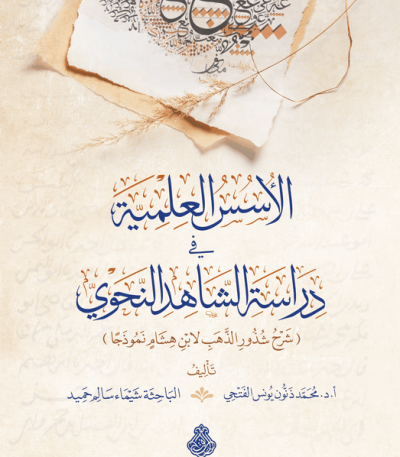 الأُسُسُ العِلْمِيَّة
في
دِرَاسَةِ الشَّاهِدِ النَّحْوِيِّ
( شَرْحُ شُذُورِ الذَّهَبِ لابْنِ هِشَامٍ نَمُوذَجًا )
تَأْلِيفُ
أ.د. مُحَمَّد ذَنُّون يُونس الفَتْحِي الباحِثَة شَيْمَاء سَالِم حَمِيد